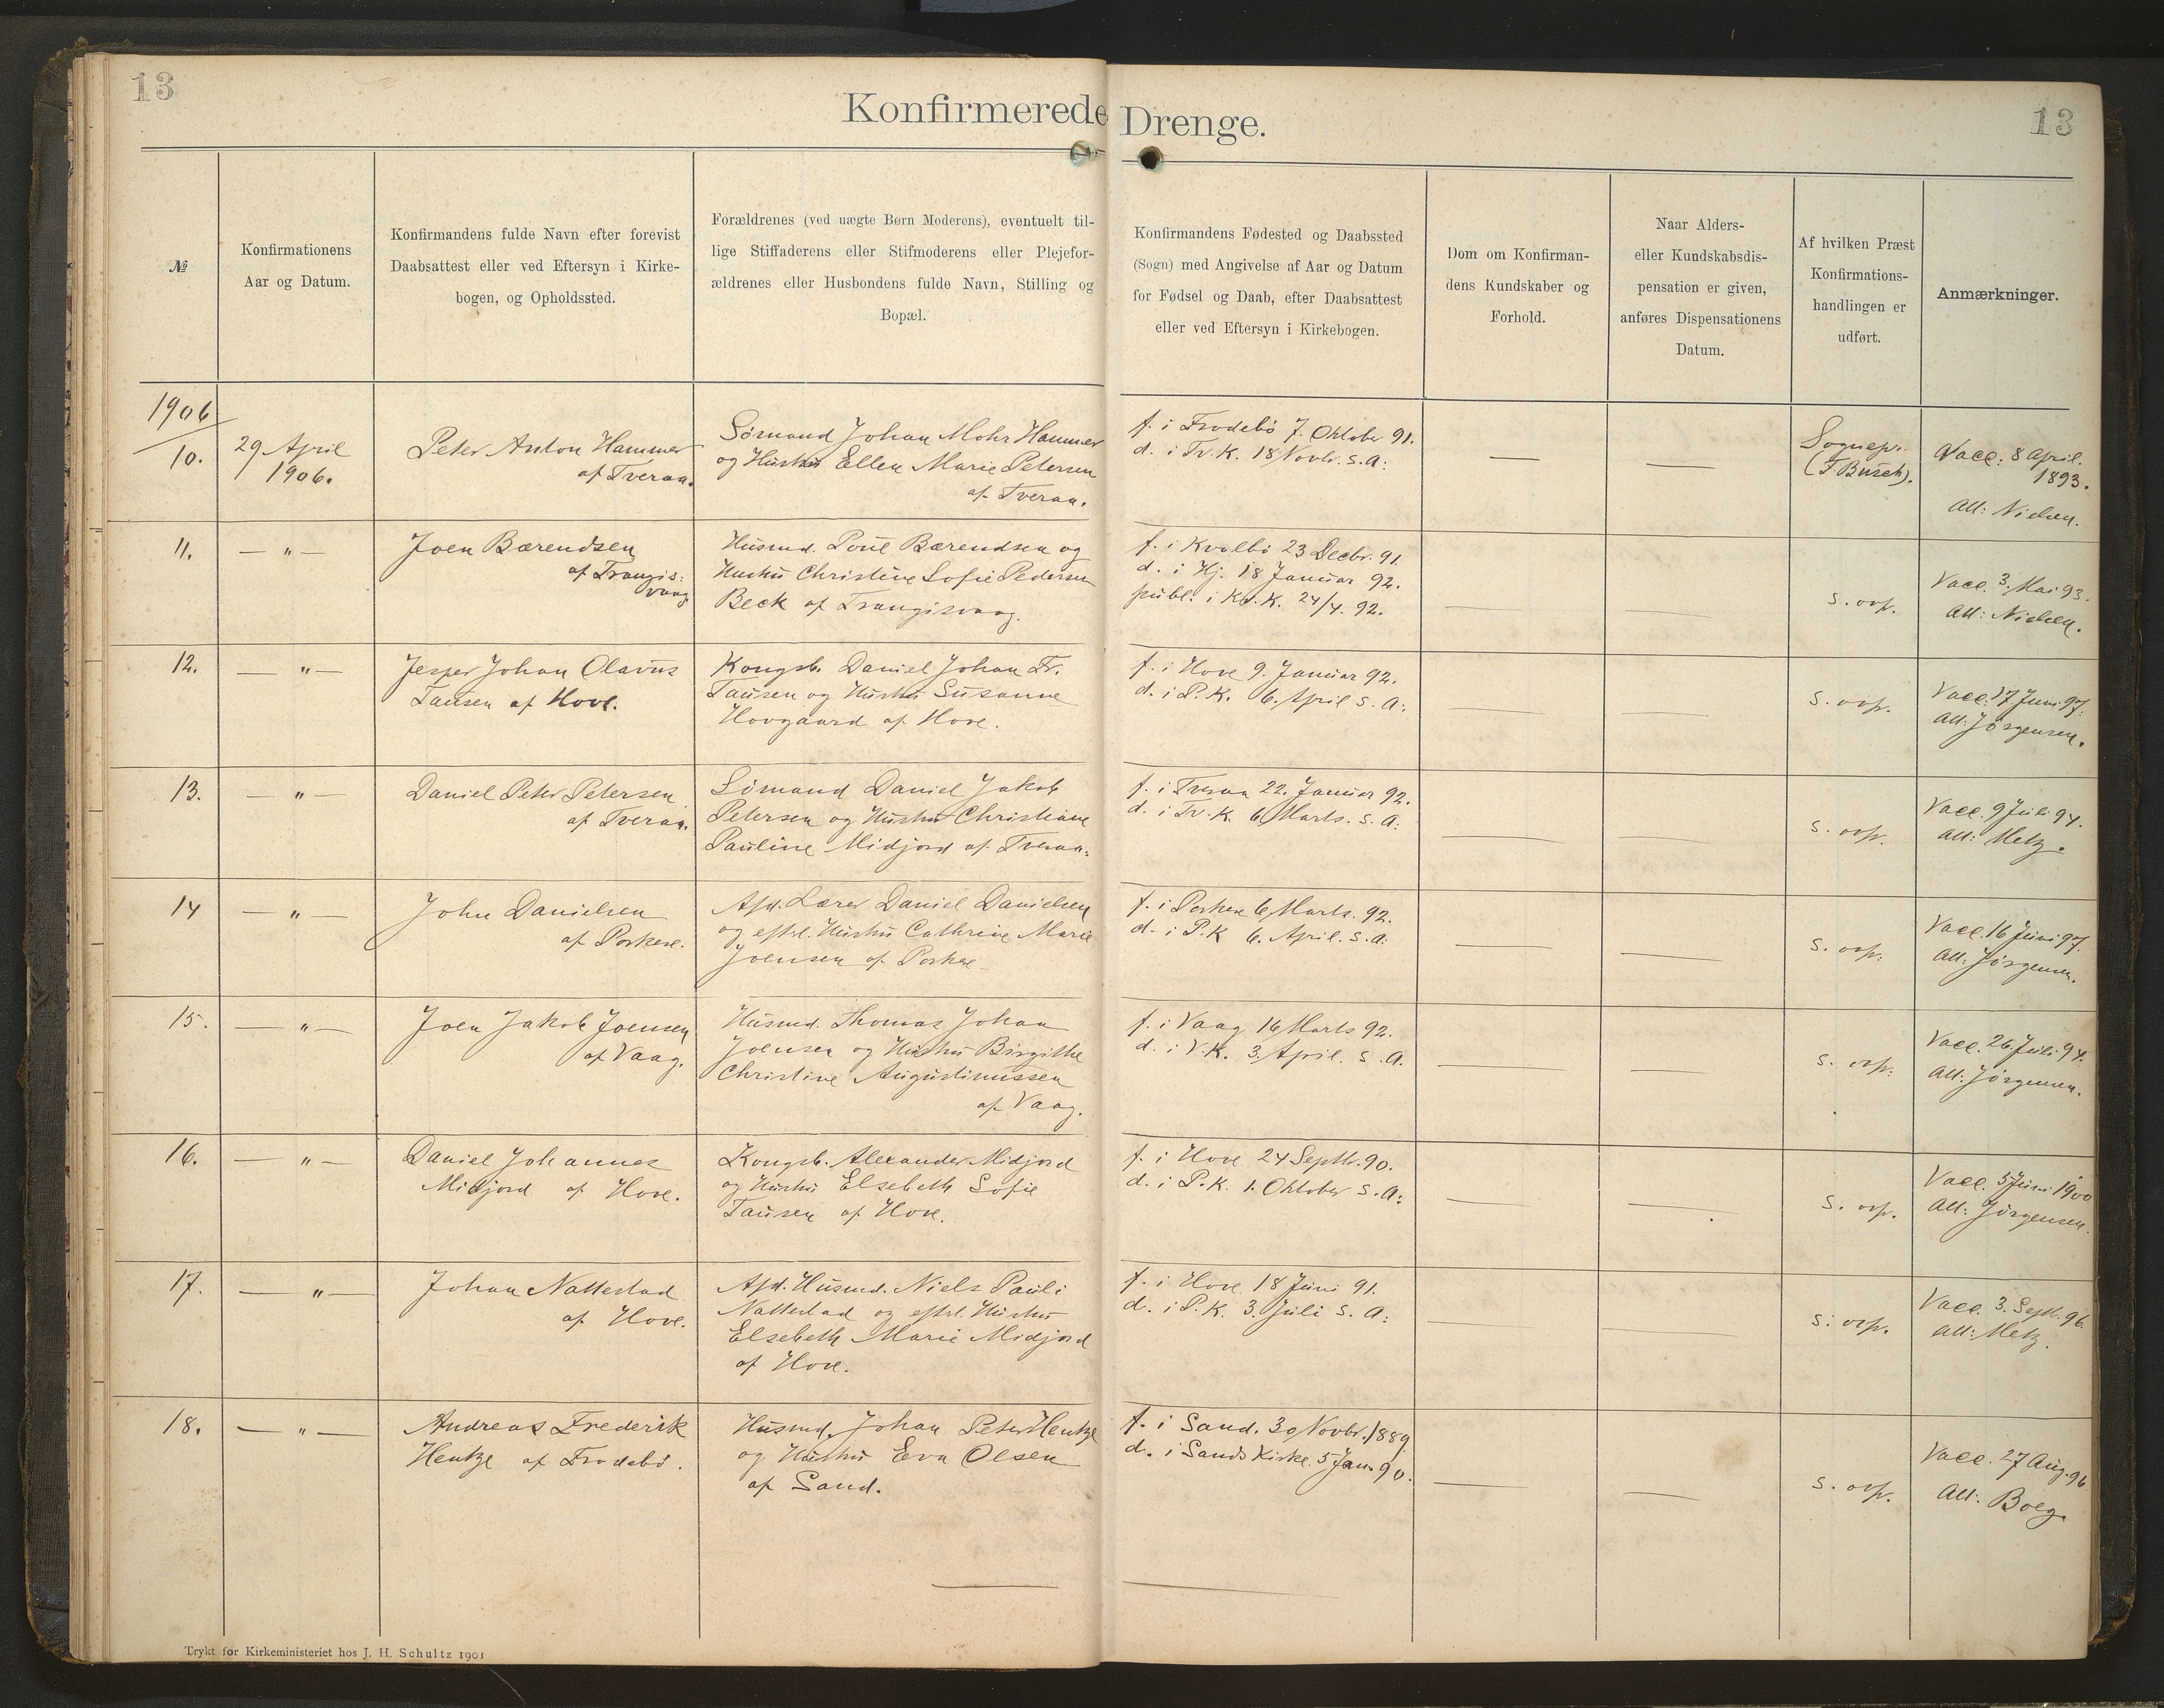 13
Konfirmerede Drenge.
13
№
Konfirmationens
Aar og Datum.
Konfirmandens fulde Navn efter forevist
Daabsattest eller ved Eftersyn i Kirke-
bogen, og Opholdssted.
Forældrenes (ved uægte Børn Moderens), eventuelt til-
lige Stiffaderens eller Stifmoderens eller Plejefor-
ældrenes eller Husbondens fulde Navn, Stilling og
Bopæl.
Konfirmandens Fødested og Daabssted
(Sogn) med Angivelse af Aar og Datum
for Fødsel og Daab, efter Daabsattest
eller ved Eftersyn i Kirkebogen.
Dom om Konfirman-
dens Kundskaber og
Forhold.
Naar Alders-
eller Kundskabsdis-
pensation er given,
anføres Dispensationens
Datum.
Af hvilken Præst
Konfirmations-
handlingen er
udført.
Anmærkninger.
1906
10.
29 April
1906.
Peter Anton Hammer
af Tveraa.
Sömand Johan Mohr Hammer
og Hustru Ellen Marie Petersen
af Tveraa.
f. i Frodebö 7. Oktober 91.
d. i Tv. K. 18 Novbr. s. A.
—
—
Sognepr.
(F. Busch).
Vacc: 8 April.
1893.
Att: Nielsen.
11.
— " —
Joen Bærendsen
af Trangis-
vaag.
Husmd. Poul Bærendsen og
Hustru Christine Sofie Pedersen
Beck af Trangisvaag.
f. i Kvalbö 23 Decbr. 91.
d. i Hj. 18 Januar 92.
publ. i Kv. K. 24/4. 92.
—
—
s. ovf.
Vacc. 3. Mai 93.
Att: Nielsen.
12.
— " —
Jesper Johan Olavus
Tausen af Hove.
Kongsb. Daniel Johan Fr.
Tausen og Hustru Susanne
Hovgaard af Hove.
f. i Hove 9. Januar 92.
d. i P. K. 6. April s. A.
—
—
s. ovf.
Vacc. 17 Juni 97.
Att: Jörgensen.
13.
— " —
Daniel Peter Petersen
af Tveraa.
Sömand Daniel Jakob
Petersen og Hustru Christiane
Pauline Midjord af Tveraa.
f. i Tveraa 22. Januar 92.
d. i Tv. K. 6 Marts. s. A.
—
—
s. ovf.
Vacc. 9 Juli 94.
Att: Metz.
14
— " —
John Danielsen
af Porkere.
Afd. Lærer Daniel Danielsen
og eftrl. Hustru Cathrine Marie
Joensen af Porkere
f. i Porkere 6 Marts. 92.
d. i P. K 6. April. s. A.
—
—
s. ovf.
Vacc. 16 Juni 97.
Att: Jörgensen.
15.
— " —
Joen Jakob Joensen
af Vaag.
Husmd. Thomas Johan
Joensen og Hustru Birgithe
Christine Augustinussen
af Vaag.
f. i Vaag 16 Marts 92.
d. i V. K. 3. April. s. A.
—
—
s. ovf.
Vacc. 26. Juli 94.
Att: Jörgensen.
16.
— " —
Daniel Johannes
Midjord af Hove.
Kongsb. Alexander Midjord
og Hustru Elsebeth Sofie
Tausen af Hove.
f. i Hove 24 Septbr. 90.
d. i P. K. 1. Oktober s. A.
—
—
s. ovf.
Vacc. 5 Juni 1900
Att: Jörgensen.
17.
— " —
Johan Nattestad
af Hove.
Afd. Husmd. Niels Pauli
Nattestad og eftrl. Hustru
Elsebeth Marie Midjord
af Hove.
f. i Hove 18 Juni 91.
d. i P. K. 3. Juli s. A.
—
—
s. ovf.
Vacc. 3. Septb. 96.
Att: Metz.
18.
— " —
Andreas Frederik
Hentze af Frodebö.
Husmd. Johan Peter Hentze
og Hustru Eva Olsen
af Sand.
f. i Sand. 30 Novbr. 1889.
d. i Sands Kirke. 5 Jan. 90.
—
—
s. ovf.
Vacc. 27 Aug. 96
Att: Boeg.
Trykt for Kirkeministeriet hos J. H. Schultz 1901